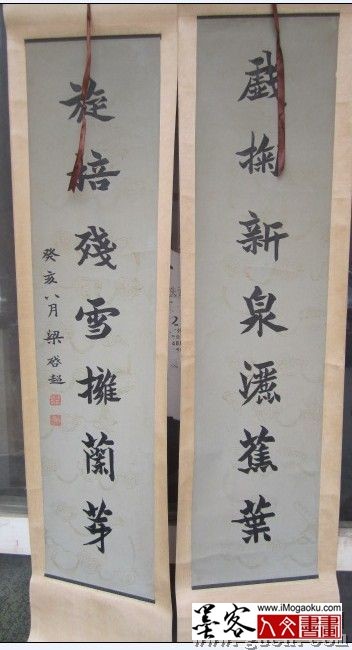 戲掬新泉灑蕉葉
旋培殘雪擁蘭芽
癸亥八月梁啓超
墨客
www.iMogaoku.com
人文書畫